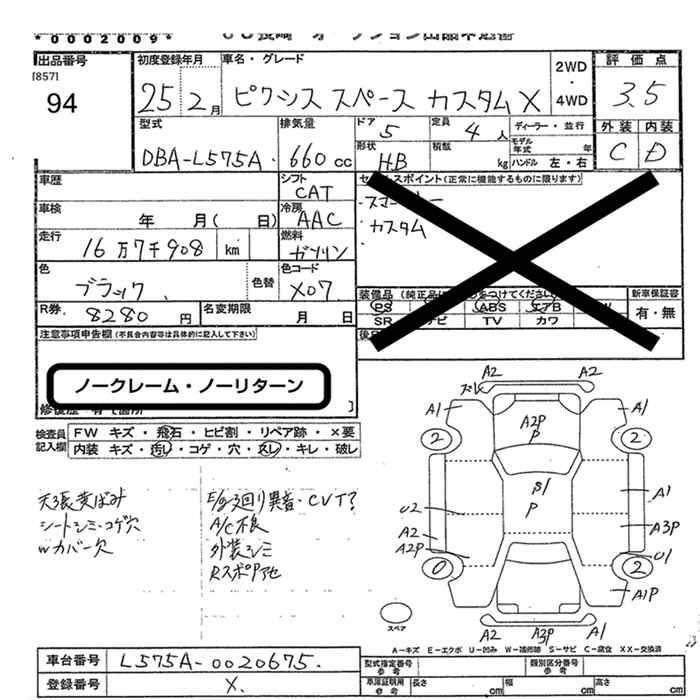 *0002009*
出品番号
[857]
94
初度登録年月
25 2月
車名・グレード
ピクシス スペース カスタムX
2WD
・
4WD
評価点
3.5
外装 内装
C D
型式
DBA-L575A
排気量
660 cc
ドア
5
定員
4人
ディーラー・並行
形状
HB
積載
kg
モデル年式 年
ハンドル 左・右
車歴
シフト
CAT
セールスポイント(正常に機能するものに限ります)
カスタム
車検
年 月( 日)
冷房
AAC
走行
16万7千908 km
燃料
ガソリン
色
ブラック
色替
色コード
X07
装備品
PS ABS エアB
SR ナビ TV カワ
新車保証書
有・無
R券
8280円
名変期限
月 日
注意事項申告欄(不具合内容等は具体的に記入して下さい)
ノークレーム・ノーリターン
検査員記入欄
FW キズ・飛石・ヒビ割・リペア跡・×要
内装 キズ・汚れ・コゲ・穴・スレ・キレ・破レ
天張黄ばみ
シートシミ・コゲ穴
Wカバー欠
E/g廻り異音・CVT?
A/C不良
外装シミ
RスポP他
A2 A2
ズレ
A1 A1
2 2
A2P
P
S1
P
U2
A1
A2
A3P
A2P
U1
0 2
A1P
A2 A3P A1
スペア
A-キズ E-エクボ U-凹み W-補修跡 S-サビ C-腐食 XX-交換済
車台番号
L575A-0020675
登録番号
X
型式指定番号
参考
類別区分番号
参考
車庫証明用
参考
長さ cm 幅 cm 高さ cm